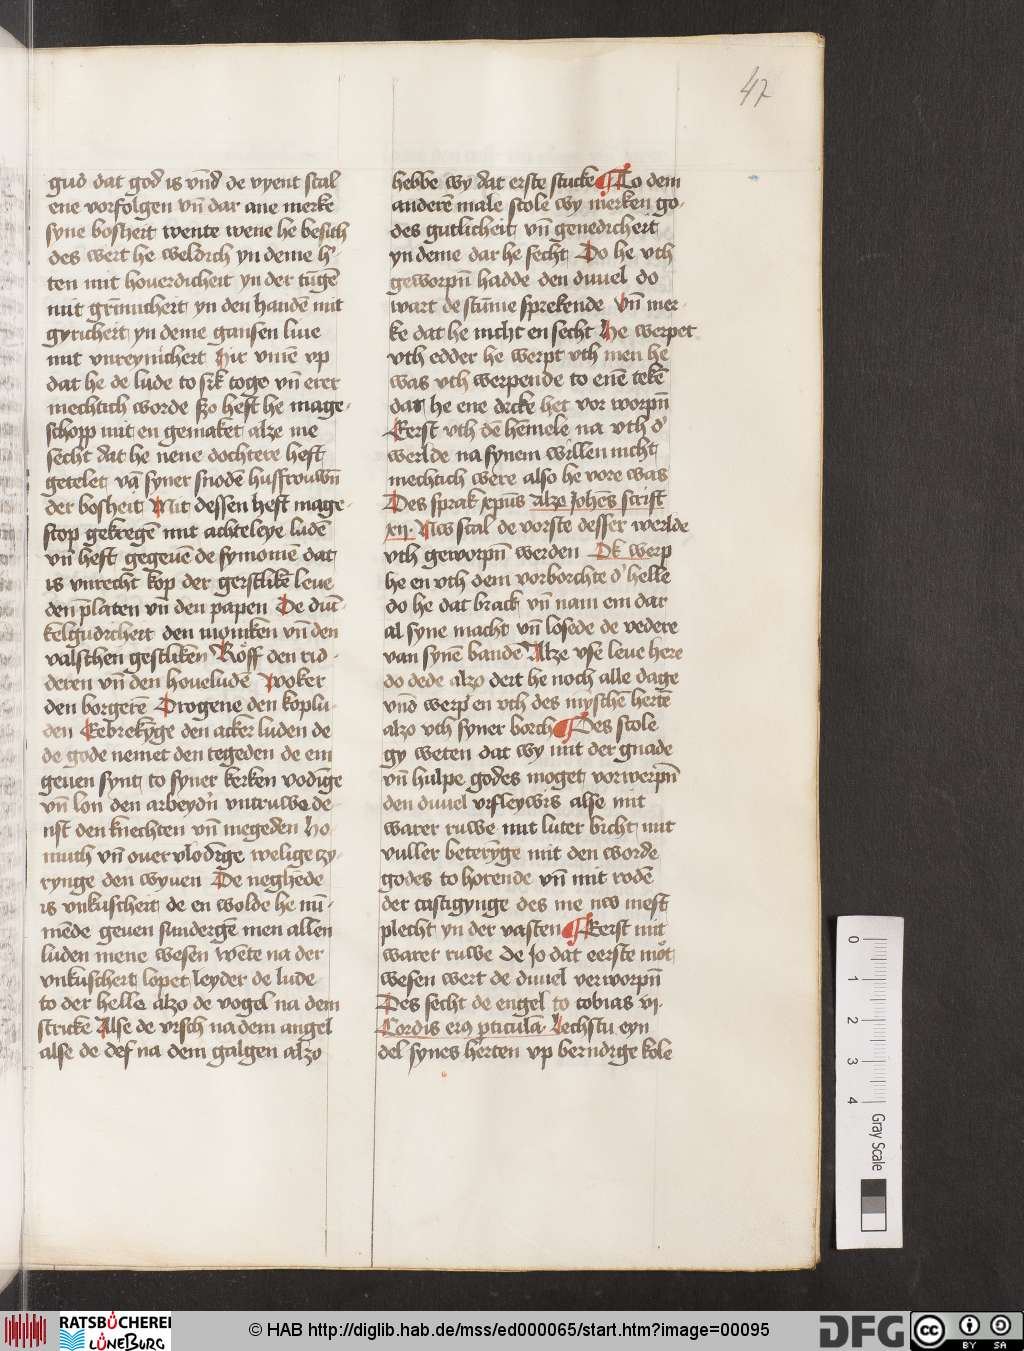 47
gud dat god is vn̄d de vyent scal
ene vorfolgen vn̄ dar ane merke
syne bosheit wente wene he besich
des wert he weldich yn deme h'
ten mit houerdicheit yn der tūgē
mit grīmicheit yn den handē mit
gyricheit yn deme gansen liue
mit vnreynicheit Hir vmē vp
dat he de lude to sik toge vn̄ erer
mechtich worde szo heft he mage-
schopp mit en gemaket alze me
secht dat he nene dochtere heft
getelet vā syner snodē husfrouwn̄
der bosheit Mit dessen heft mage-
scop gekregē mit achteleye ludē
vn̄ heft gegeuē de symonien dat
is vnrecht kop der gerstlikē leue
den platen vn̄ den papen De dūt-
kelgudicheit den moniken vn̄ den
valschen gestliken Roff den rid-
deren vn̄ den houeludē Woker
den borgerē Drogene den koplu-
den Eebrekyge den acker luden de
de gode nemet den tegeden de em
geuen synt to syner kerken vodīge
vn̄ lon den arbeydn̄ vntruwe de-
nst den knechten vn̄ megeden Ho-
muth vn̄ ouer vlodige welige czy-
rynge den wyuen De neghede
is vnkuscheit de en wolde he nū-
mēde geuen sundergē men allen
luden mene wesen wēte na der
vnkuscheit lopet leyder de lude
to der helle alzo de vogel na dem
stricke Alse de visch na dem angel
alse de def na dem galgen alzo
hebbe wy dat erste stucke ¶ To dem
anderē male scole wy merken go-
des gutlicheit vn̄ genedicheit
yn deme dar he secht Do he vth
geworpn̄ hadde den duuel do
wart de stūme sprekende Vn̄ mer-
ke dat he nicht en secht He werpet
vth edder he werpt vth men he
was vth werpende to enē tekē
dat he ene dicke het vor worpn̄
Eerst vth dē hēmele na vth d'
werlde na synem willen nicht
mechtich were also he vore was
Des sprak xp̄us alzo Joh̄es scrift
xij Nw scal de vorste desser werlde
vth geworpn̄ werden Ok werp
he en vth dem vorborchte d' helle
do he dat brack vn̄ nam em dar
al syne macht vn̄ losede de vedere
van synē bandē Alze vse leue here
do dede alzo deit he noch alle dage
vn̄d werp en vth des mȳschē hertē
alzo vth syner borch ¶ Des scole
gy weten dat wy mit der gnade
vn̄ hulpe godes moget vorwerpn̄
den duuel vifleywis alse mit
warer ruwe mit luter bicht mit
vuller beterȳge mit den worde
godes to horende vn̄ mit rodē
der castigynge des me nw mest
plecht yn der vasten ¶ Eerst mit
warer ruwe De jo dat eerste mot
wesen wert de duuel verworpn̄
Des secht de engel to tobias vj
Cordis ei9 p̄ticula Lechstu eyn
del synes herten vp berndige kole
0 1 2 3 4 Gray Scale
RATSBÜCHEREI
LÜNEBURG
© HAB http://diglib.hab.de/mss/ed000065/start.htm?image=00095
DFG
cc BY SA